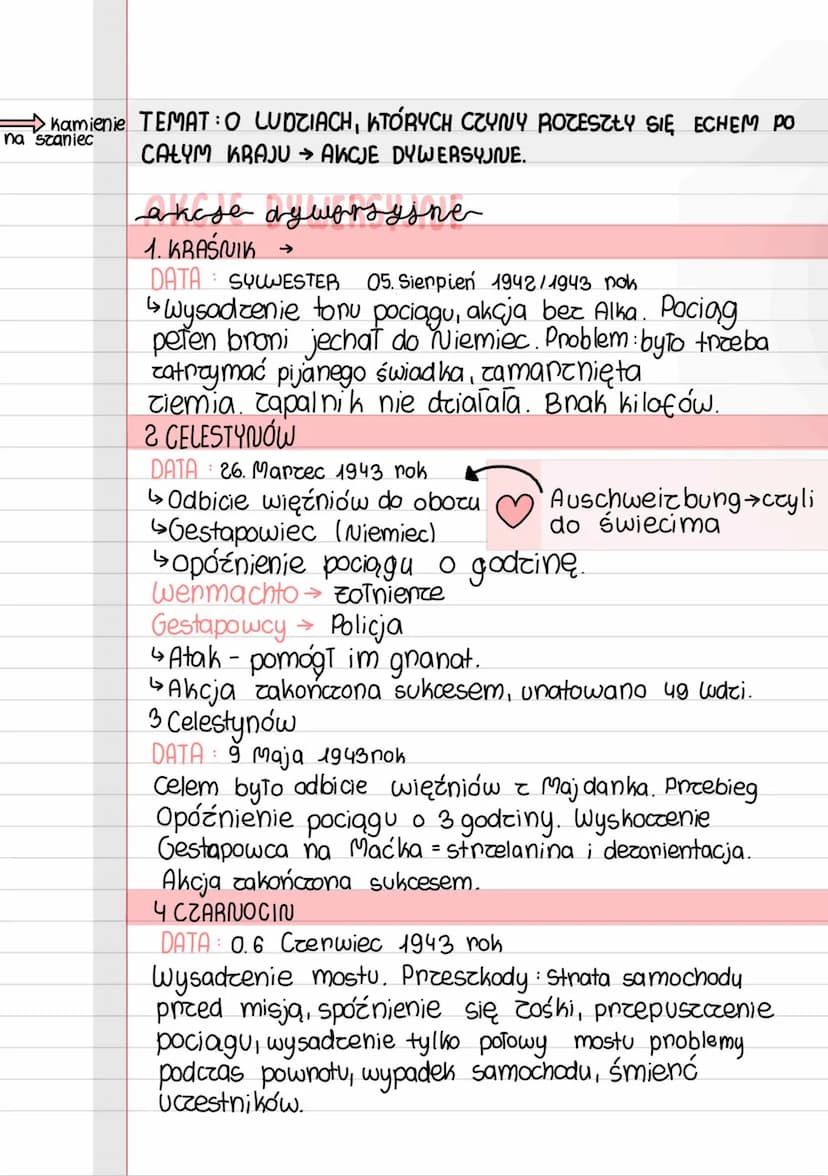 Kamienie
na szaniec
TEMAT: O LUDZIACH, KTÓRYCH CZYNY ROZESZŁY SIĘ ECHEM PO
CAŁYM KRAJU → AKCJE DYWERSYJNE.
AKCJE DYWERSYJNE
akcje dywersyjne
1. KRAŚNIK →
DATA : SYLWESTER 05. Sierpień 1942/1943 rok
↳ Wysadzenie toru pociągu, akcja bez Alka. Pociąg
pełen broni jechał do Niemiec. Problem: było trzeba
zatrzymać pijanego świadka, zamarznięta
ziemia. Zapalnik nie działała. Brak kilofów.
2 CELESTYNÓW
DATA : 26. Marzec 1943 rok
↳ Odbicie więźniów do obozu
Auschweizburg → czyli
do świecima
↳ Gestapowiec (Niemiec)
↳ Opóźnienie pociągu o godzinę.
Wermachto → Żołnierze
Gestapowcy → Policja
↳ Atak - pomógł im granat.
↳ Akcja zakończona sukcesem, uratowano 49 ludzi.
3 Celestynów
DATA : 9 Maja 1943 rok
Celem było odbicie więźniów z Majdanka. Przebieg
Opóźnienie pociągu o 3 godziny. Wyskoczenie
Gestapowca na Maćka = strzelanina i dezorientacja.
Akcja zakończona sukcesem.
4 CZARNOCIN
DATA : 0.6 Czerwiec 1943 rok
Wysadzenie mostu. Przeszkody : Strata samochody
przed misją, spóźnienie się Zośki, przepuszczenie
pociągu, wysadzenie tylko połowy mostu problemy
podczas powrotu, wypadek samochodu, śmierć
uczestników.